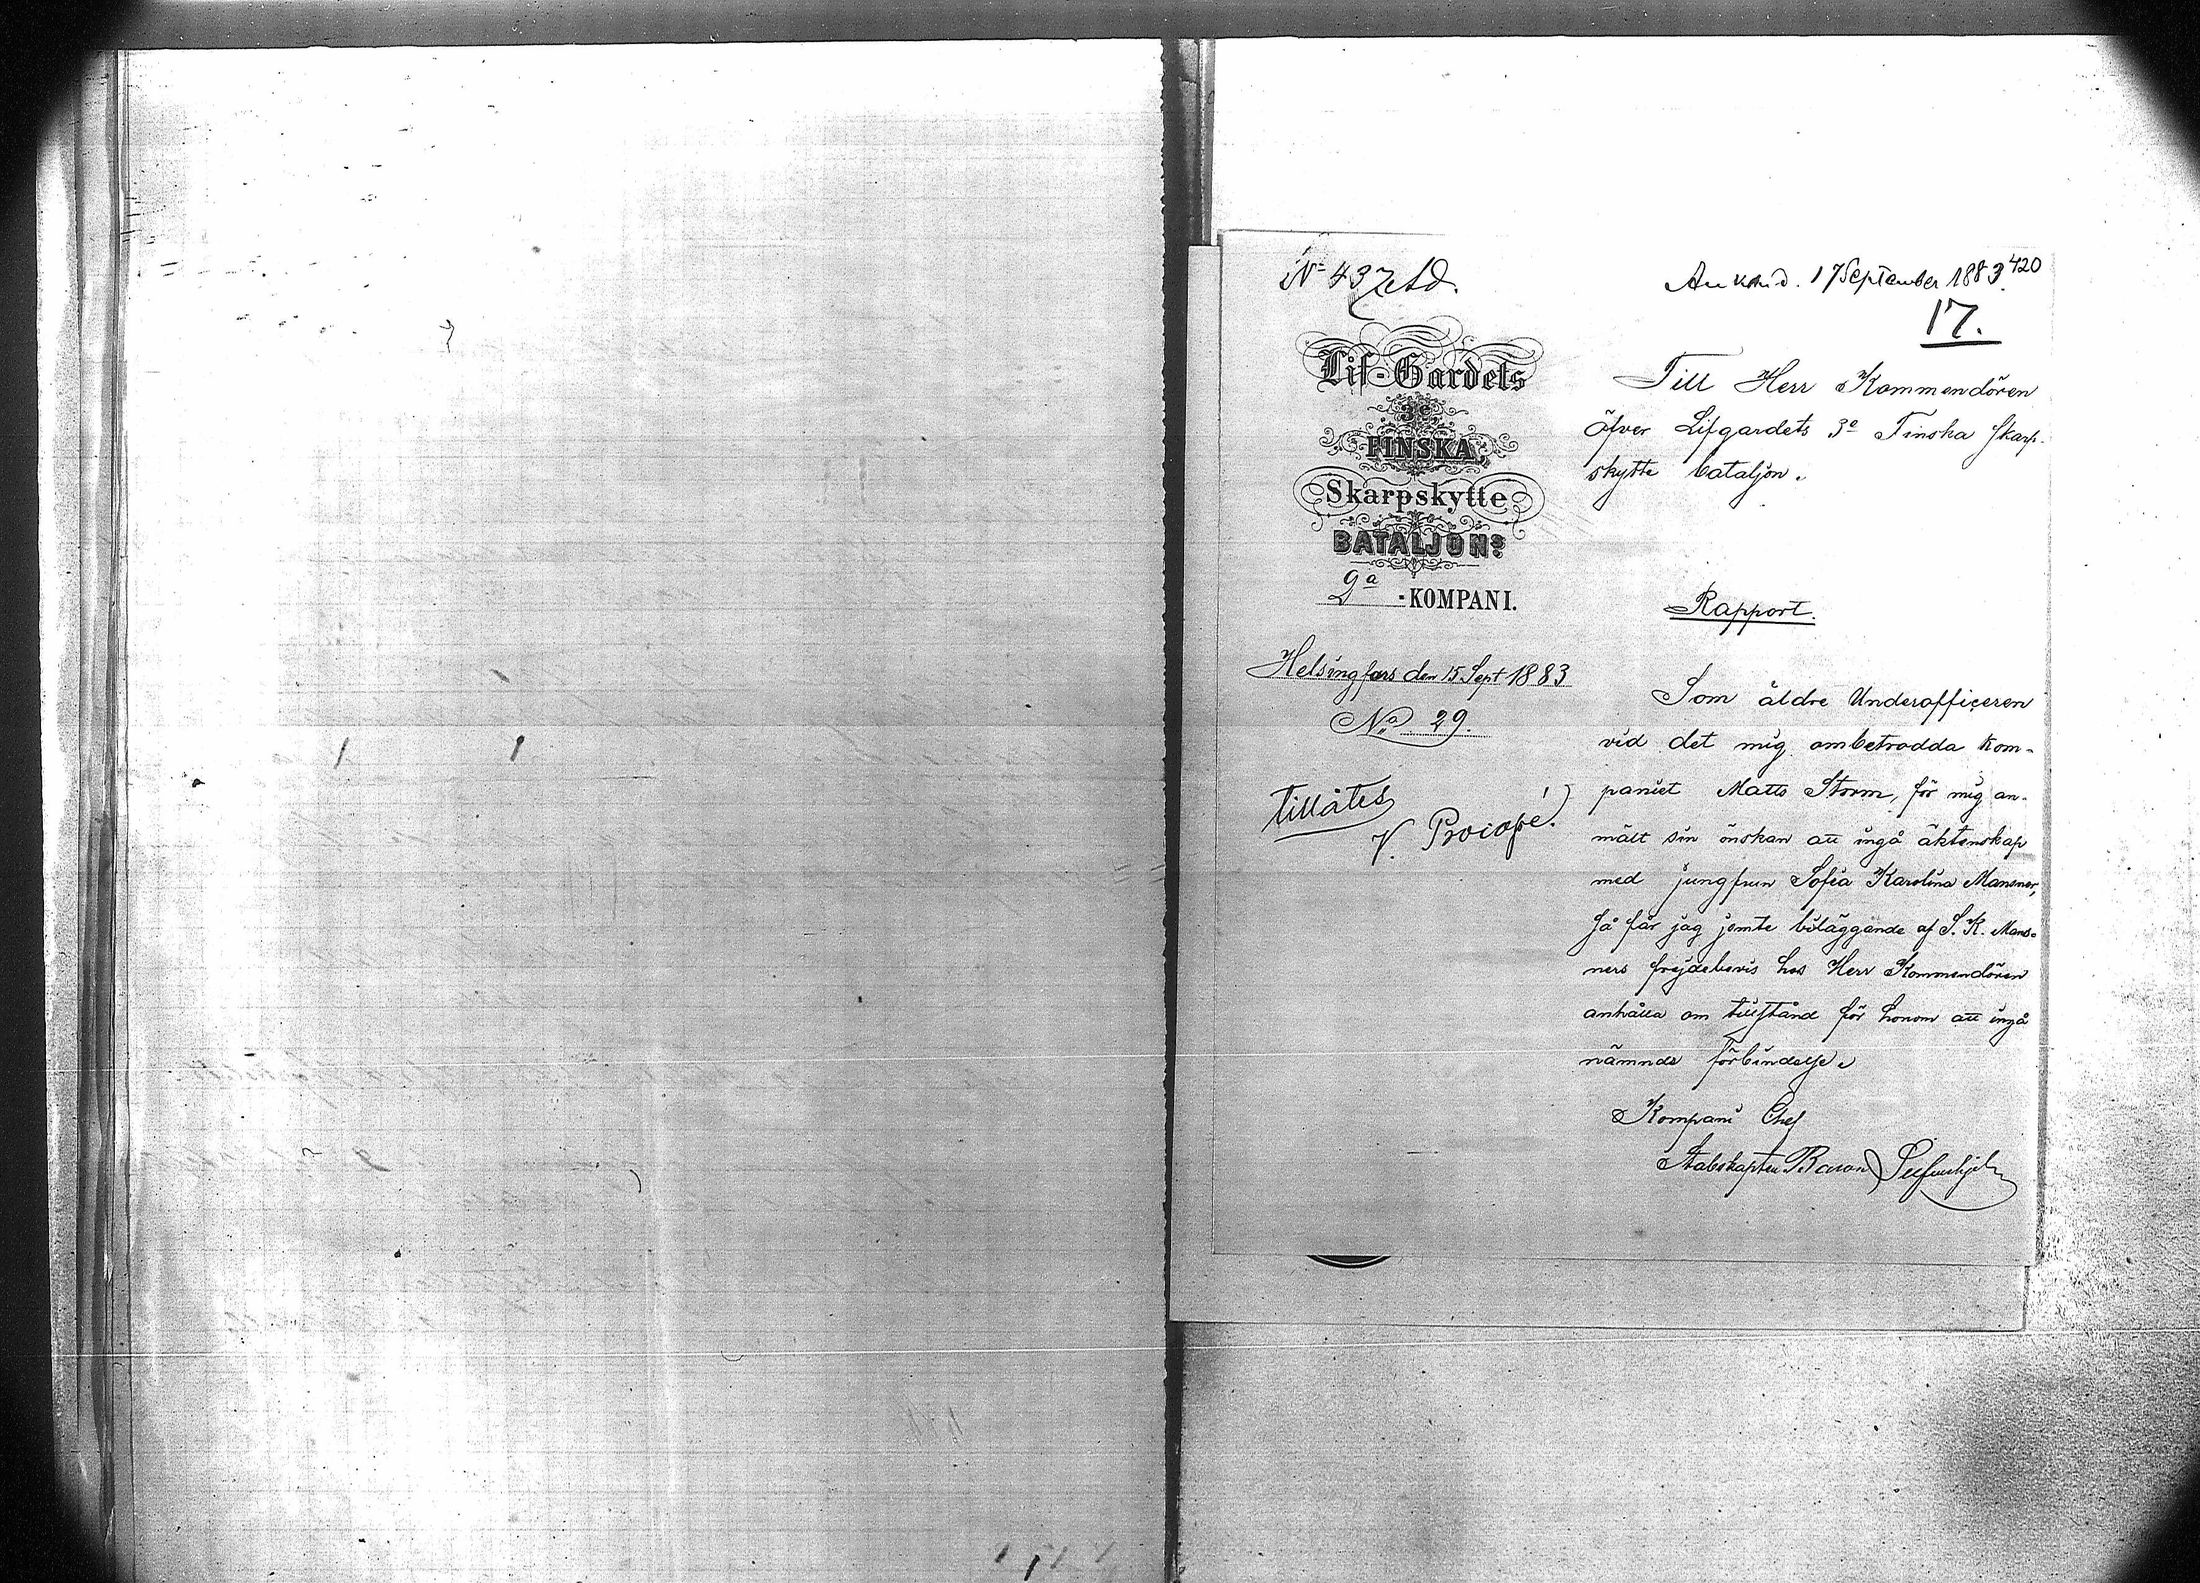 No 437 Ad.
Ank. d. 17 September 1883. 420
17.
Lif-Gardets
3e
FINSKA
Skarpskytte
BATALJONs
2a -KOMPANI.
Helsingfors den 15 Sept 1883
No 29.
Tillåtes
V. Procopé.
Till Herr Kommendören
öfver Lifgardets 3e Finska Skarp-
skytte bataljon.
Rapport.
Som äldre Underofficeren
vid det mig ombetrodda kom-
paniet Matts Storm, för mig an-
mält sin önskan att ingå äktenskap
med jungfrun Sofia Karolina Mansner,
så får jag jemte biläggande af S. K. Mans-
ners frejdebevis hos Herr Kommendören
anhålla om tillstånd för honom att ingå
nämnde förbindelse.
Kompani Chef
Stabskapten Baron